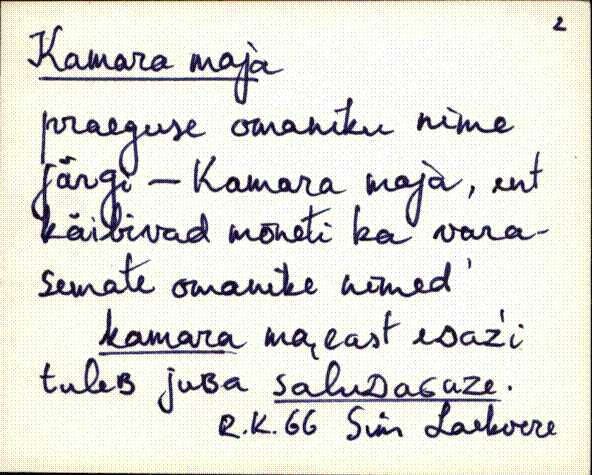 2
Kamara maja
praeguse omaniku nime
järgi – Kamara maja, ent
käibivad mõneti ka vara-
semate omanike nimed
kamara
tuleʙ juʙa
R.K. 66 Sim Laekvere